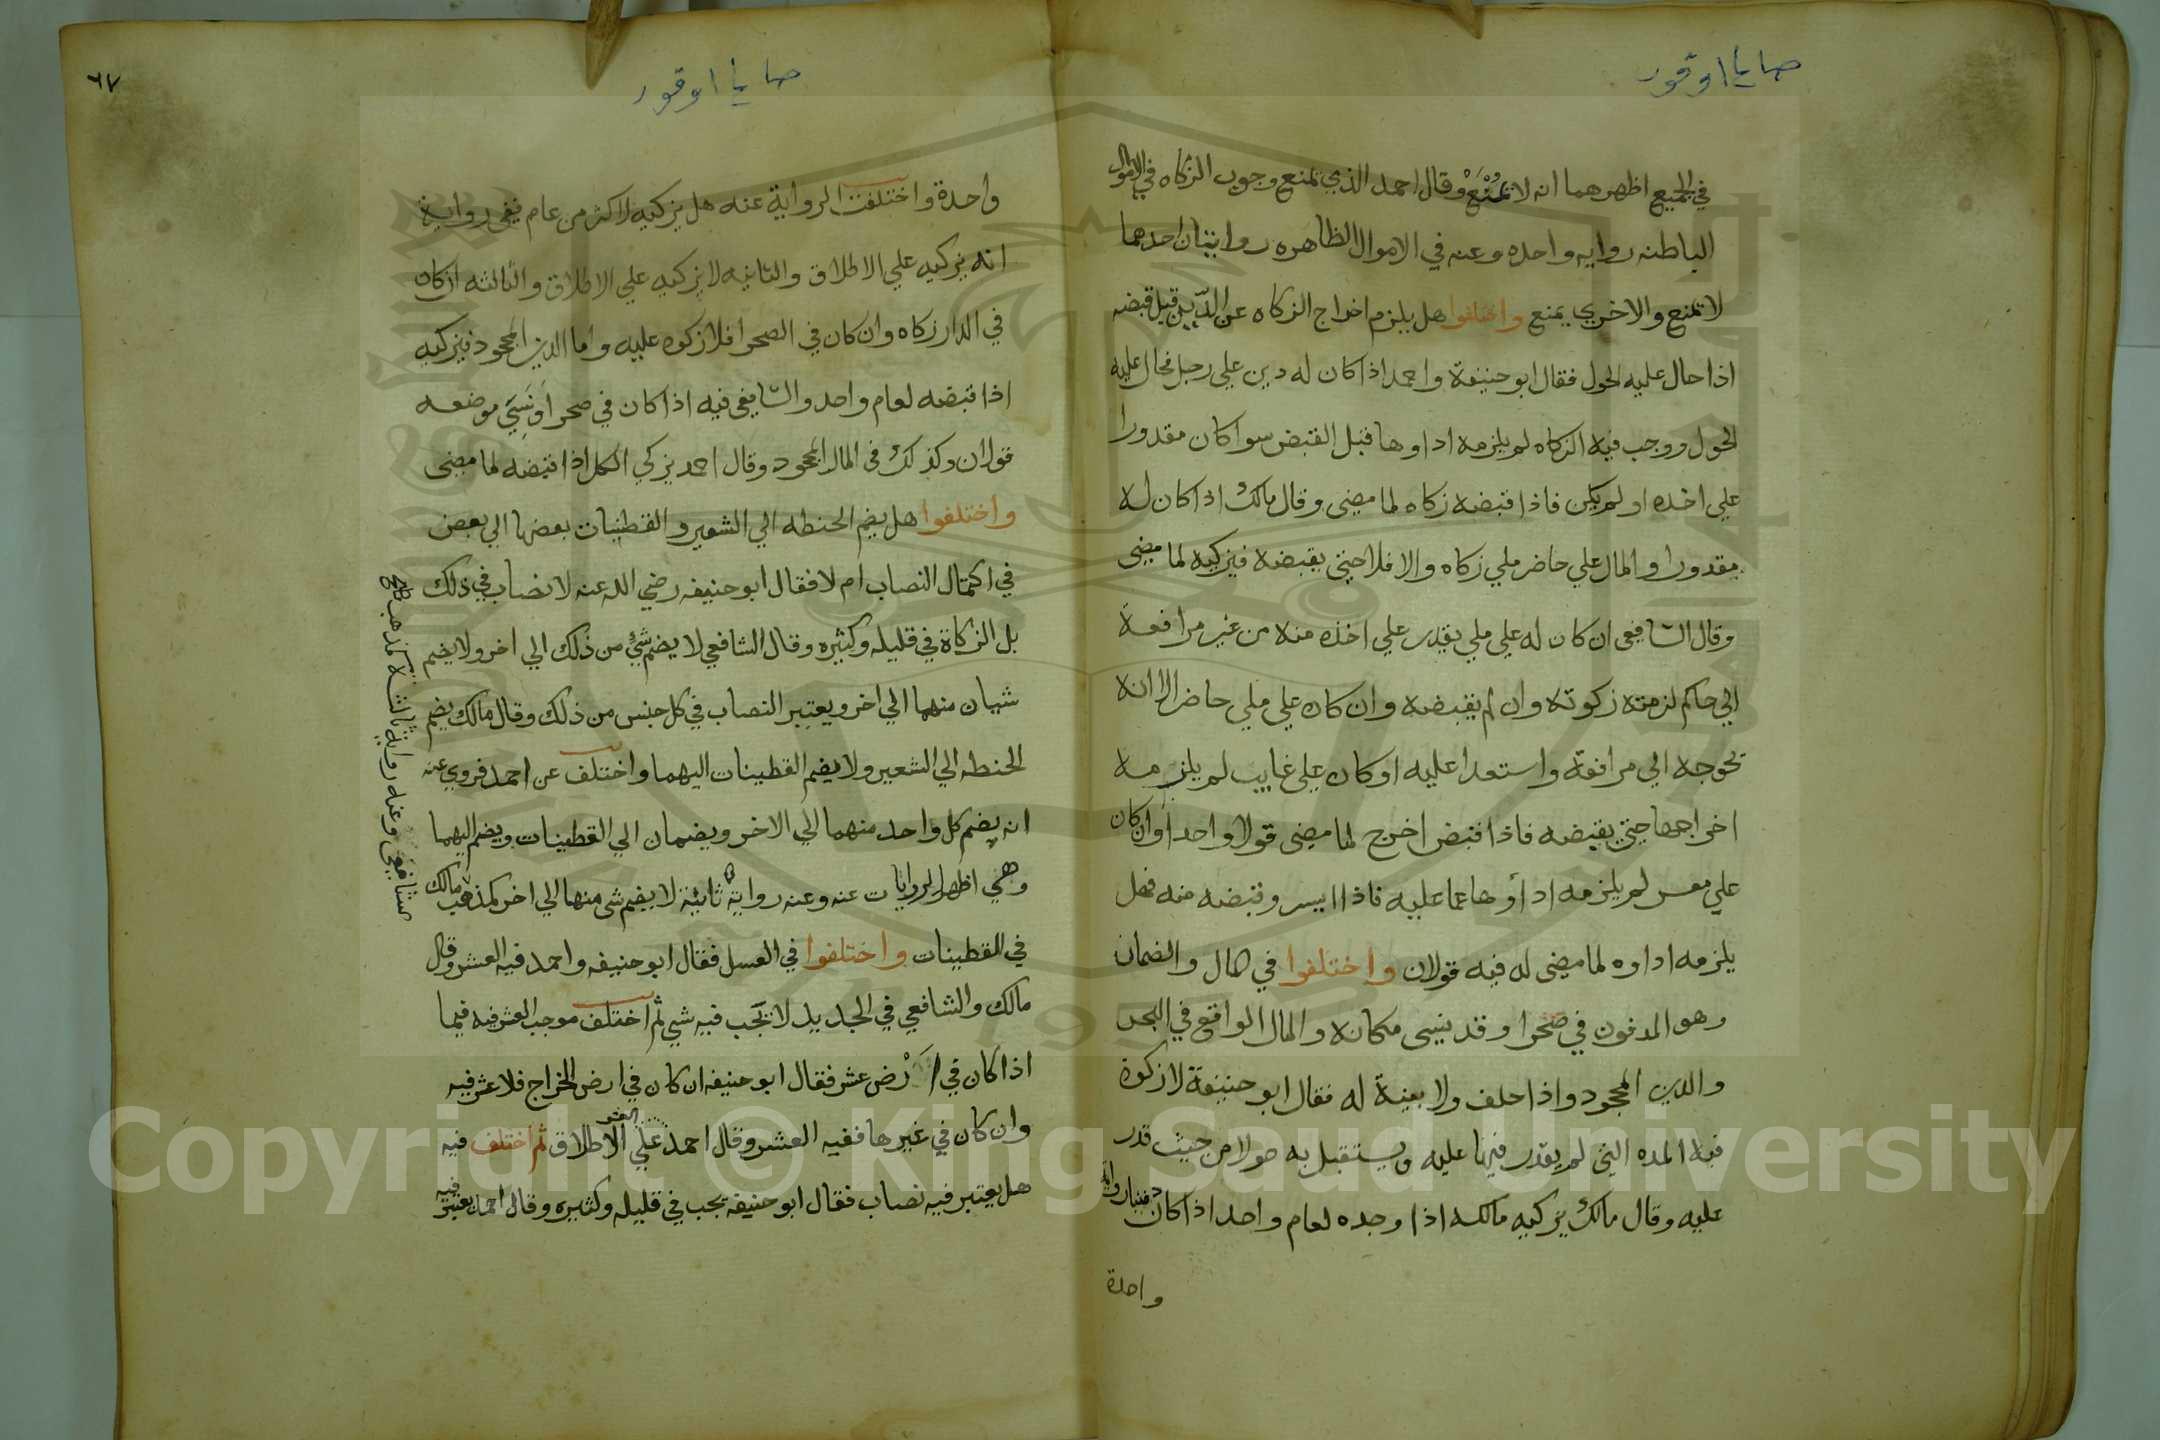 في الجميع اظهرهما انه لا تمنع وقال احمد الذي تمنع وجوب الزكاه في الاموال
الباطنه روايه واحده وعنه في الاموال الظاهره روايتان احدهما
لا تمنع والاخري يمنع واختلفوا هل يلزم اخراج الزكاه عن الدين قبل قبضه
اذا حال عليه الحول فقال ابو حنيفة واحمد اذا كان له دين علي رجل فحال عليه
الحول ووجب فيه الزكاه لم يلزمه اداوها قبل القبض سوا كان مقدورا
علي اخذه او لم يكن فاذا قبضه زكاه لما مضى وقال مالك اذا كان له
مقدورا والمال علي حاضر ملي زكاه والا فلا حتى يقبضه فيزكيه لما مضى
وقال الشافعى ان كان له على ملي يقدر علي اخذه منه من غير مرافعة
الي حاكم لزمته زكوته وان لم يقبضه وان كان علي ملي حاضر الا انه
تحوجه الي مرافعة واستعدا عليه او كان علي غايب لم يلزمه
اخراجها حتى يقبضه فاذا قبض اخرج لما مضى قولا واحدا وان كان
علي معسر لم يلزمه اداوها عما عليه فاذا ايسر وقبضه منه فهل
يلزمه اداوه لما مضى له فيه قولان واختلفوا في المال والضمان
وهو المدفون في صحرا وقد ينسى مكانه والمال الواقع في البحر
والدين المجحود واذا حلف ولا بينة له فقال ابو حنيفة لا زكوة
فيه المده التي لم يقدر فيها عليه ويستقبل به حولا من حيث قدر
عليه وقال مالك يزكيه مالكه اذا وجده لعام واحد اذا كان
واحدة
٦٧
واحدة واختلفت الرواية عنه هل يزكيه لاكثر من عام ففى رواية
انه يزكيه علي الاطلاق والثانيه لا يزكيه علي الاطلاق والثالثه ان كان
في الدار زكاه وان كان في الصحرا فلا زكوه عليه واما الدين المجحود فيزكيه
اذا قبضه لعام واحد والشافعى فيه اذا كان في صحرا ونسي موضعه
قولان وكذلك في المال المجحود وقال احمد يزكي الكل اذا قبضه لما مضى
واختلفوا هل يضم الحنطه الي الشعير والقطنيات بعضها الي بعض
في اكتمال النصاب ام لا فقال ابو حنيفه رضي الله عنه لا نصاب في ذلك
بل الزكاة في قليله وكثيره وقال الشافعي لا يضم شي من ذلك الي اخر ولا يضم
شيان منهما الي اخر ويعتبر النصاب في كل جنس من ذلك وقال مالك يضم
الحنطه الي الشعير ولا يضم القطينات اليهما واختلف عن احمد فروي عنه
انه يضم كل واحد منهما الي الاخر ويضمان الي القطينات ويضم اليهما
وهي اظهر الروايات عنه وعنه رواية ثانية لا يضم شى منها الي اخر كمذهب مالك
في القطينات واختلفوا في العسل فقال ابو حنيفه واحمد فيه العشر وقال
مالك والشافعي في الجديد لا تجب فيه شي ثم اختلف موجب العشر فيه فيما
اذا كان في ارض عشر فقال ابو حنيفه ان كان في ارض الخراج فلا عشر فيه
وان كان في غيرها ففيه العشر وقال احمد علي الاطلاق ثم اختلف فيه
هل يعتبر فيه نصاب فقال ابو حنيفه تجب في قليله وكثيره وقال احمد يعتبر فيه
Copyright © King Saud University
1957